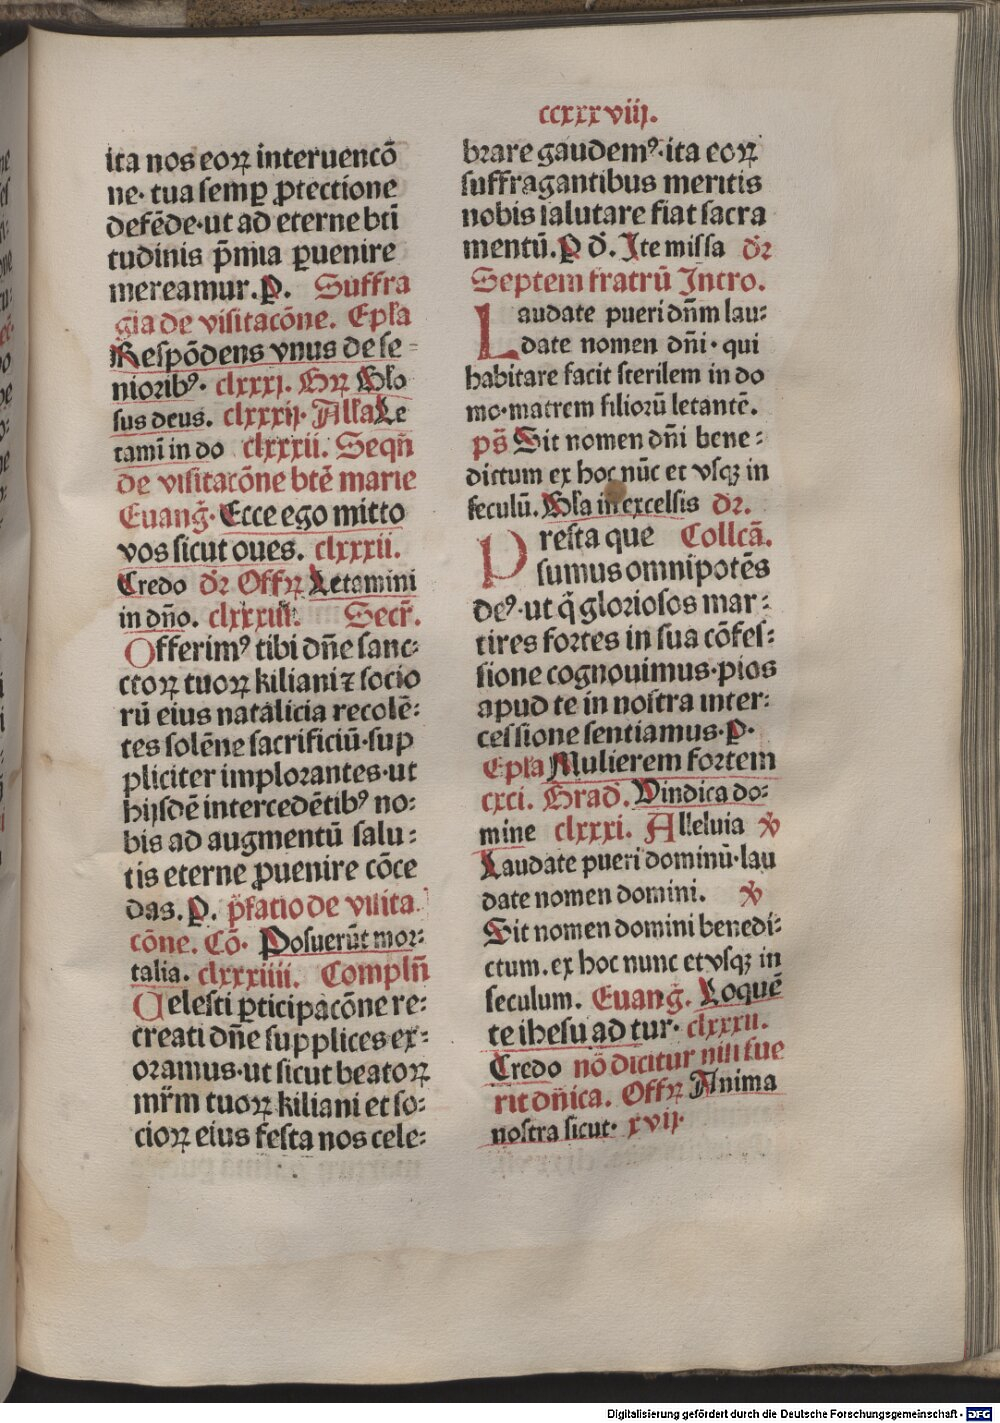 ccxxxviij.
ita nos eoꝝ interuencō
ne· tua semꝑ ꝓtectione
defēde·ut ad eterne bti̅
tudinis p̄mia ꝑuenire
mereamur.ꝑ. Suffra
gia de visitacōne. Epl̄a
Respōdens vnus de se-
nioribꝰ· clxxxj. Gꝝ Glo
sus deus. clxxxij· All̄a Le
tamī in do clxxxii. Seqn̄
de visitacōne btē marie
Euang̃· Ecce ego mitto
vos sicut oues. clxxxii.
Credo dr̄ Offꝝ Letamini
in dn̄o. clxxxiii. Secr̄.
Offerimꝰ tibi dn̄e sanc:
ctoꝝ tuoꝝ kilianiꝫ socio
rū eius natalicia recolē:
tes solēne sacrificiū·sup
pliciter implorantes·ut
hijsdē intercedētibꝰ no:
bis ad augmentū salu:
tis eterne ꝑuenire cōce
das.ꝑ. p̄fatio de visita
cōne. Cō· Posuerūt mor:
talia. clxxxiiii. Compln̄
Celesti ꝑticipacōne re:
creati dn̄e supplices ex:
oramus·ut sicut beatoꝝ
mr̄m tuoꝝ kiliani et so:
cioꝝ eius festa nos cele:
brare gaudemꝰ·ita eoꝝ
suffragantibus meritis
nobis salutare fiat sacra
mentū.ꝑ d̄. Ite missa dr̄
Septem fratrū Intro.
Laudate pueri dn̄m lau:
date nomen dn̄i· qui
habitare facit sterilem in do
mo·matrem filiorū letantē.
ps̄ Sit nomen dn̄i bene:
dictum ex hoc nūc et vsqꝫ in
seculū. Gl̄a in excelsis dr̄.
Presta que Collcā.
sumus omnipotēs
deꝰ·ut q̄ gloriosos mar:
tires fortes in sua cōfes:
sione cognouimus·pios
apud te in nostra inter:
cessione sentiamus·ꝑ·
Epl̄a Mulierem fortem
cxci. Grad̄. Vindica do:
mine clxxxi. Alleluia ℣
Laudate pueri dominū·lau
date nomen domini. ℣
Sit nomen domini benedi:
ctum.ex hoc nunc et vsqꝫ in
seculum. Euang̃. Loquē
te ihesu ad tur· clxxxii.
Credo nō dicitur nisi fue
rit dn̄ica. Offꝝ Anima
nostra sicut· xvij·
Digitalisierung gefördert durch die Deutsche Forschungsgemeinschaft - DFG